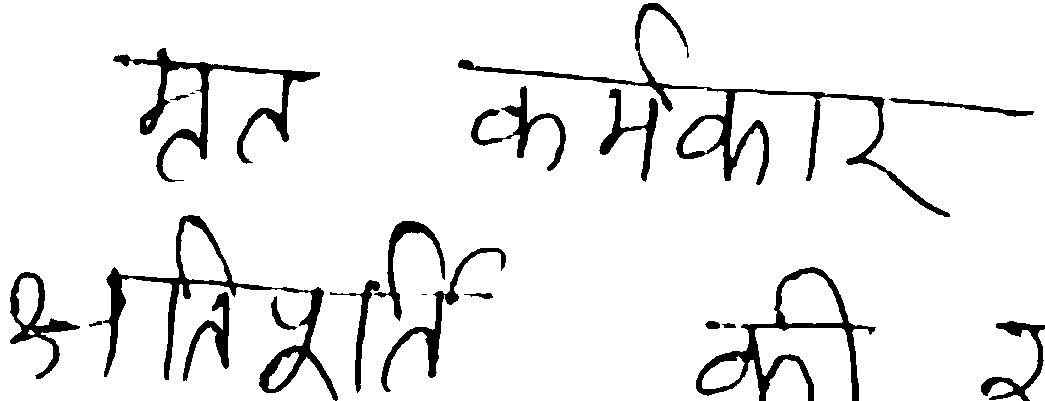 मृत कर्मकार
क्षतिपूर्ति की